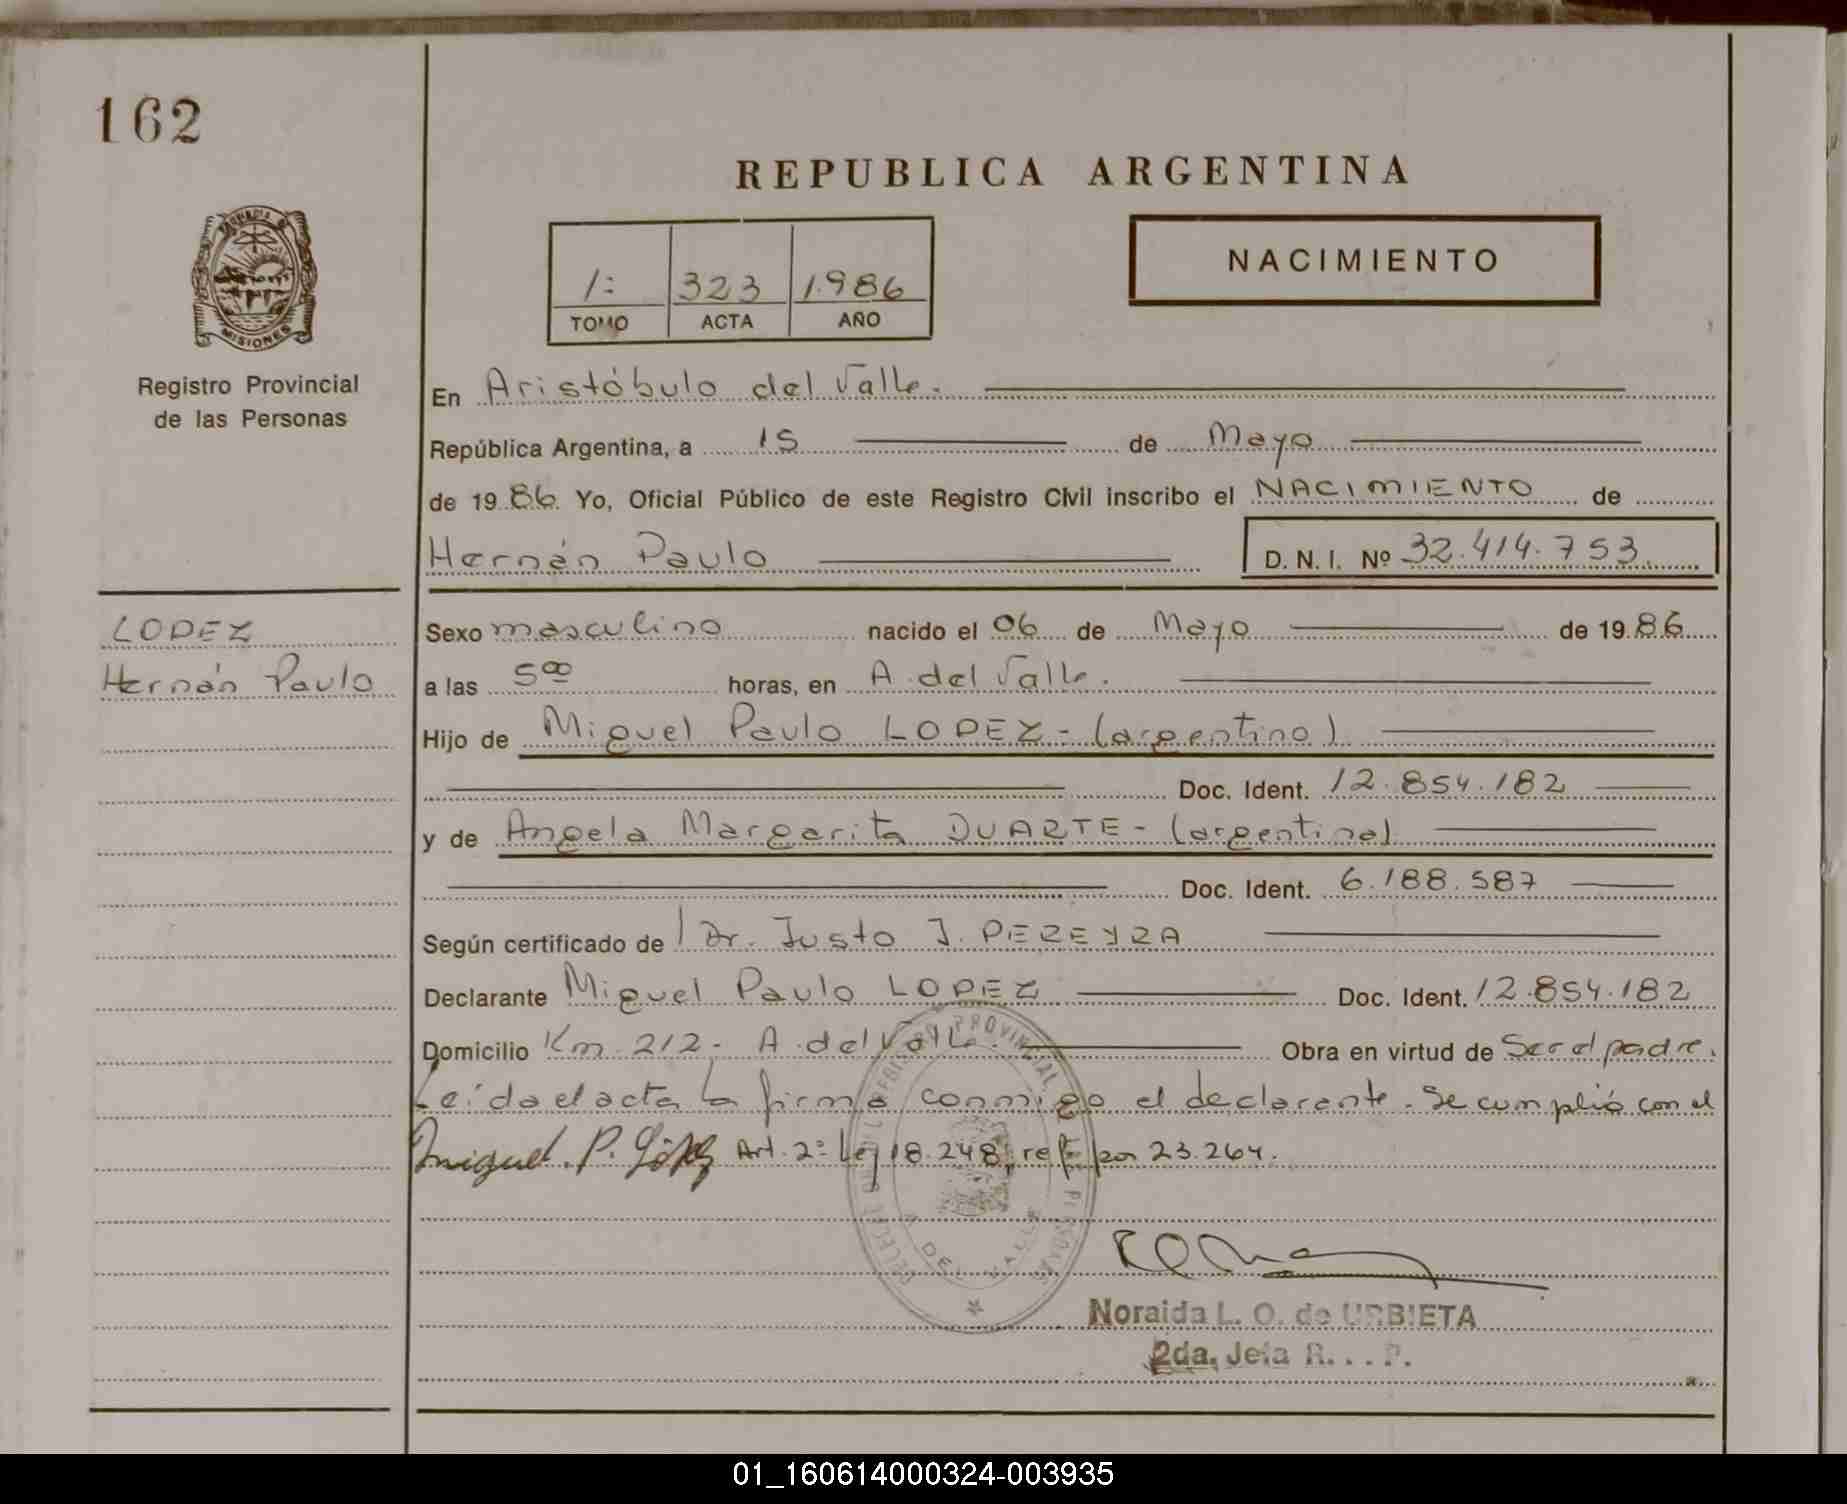 162
REPUBLICA ARGENTINA
1: 323 1986
TOMO ACTA AÑO
NACIMIENTO
MISIONES
Registro Provincial
de las Personas
En Aristóbulo del Valle.
República Argentina, a 15 de Mayo
de 19 86 Yo, Oficial Público de este Registro Civil inscribo el NACIMIENTO de
Hernán Paulo D. N. I. Nº 32.414.753
LOPEZ
Hernán Paulo
Sexo masculino nacido el 06 de Mayo de 19 86
a las 5 00 horas, en A. del Valle.
Hijo de Miguel Paulo LOPEZ - (argentino)
Doc. Ident. 12.854.182
y de Angela Margarita DUARTE - (argentina)
Doc. Ident. 6.188.587
Según certificado de Dr. Justo J. PEREYRA
Declarante Miguel Paulo LOPEZ Doc. Ident. 12.854.182
Domicilio Km. 212 - A. del Valle Obra en virtud de Ser el padre.
Leída el acta la firma conmigo el declarante. Se cumplió con el
Miguel. P. López Art. 2º Ley 18.248, ref. por 23.264.
PROVINCIAL DE LAS PERSONAS
A. DEL VALLE
Noraida L. O. de URBIETA
2da. Jefa R. . . P.
01_160614000324-003935